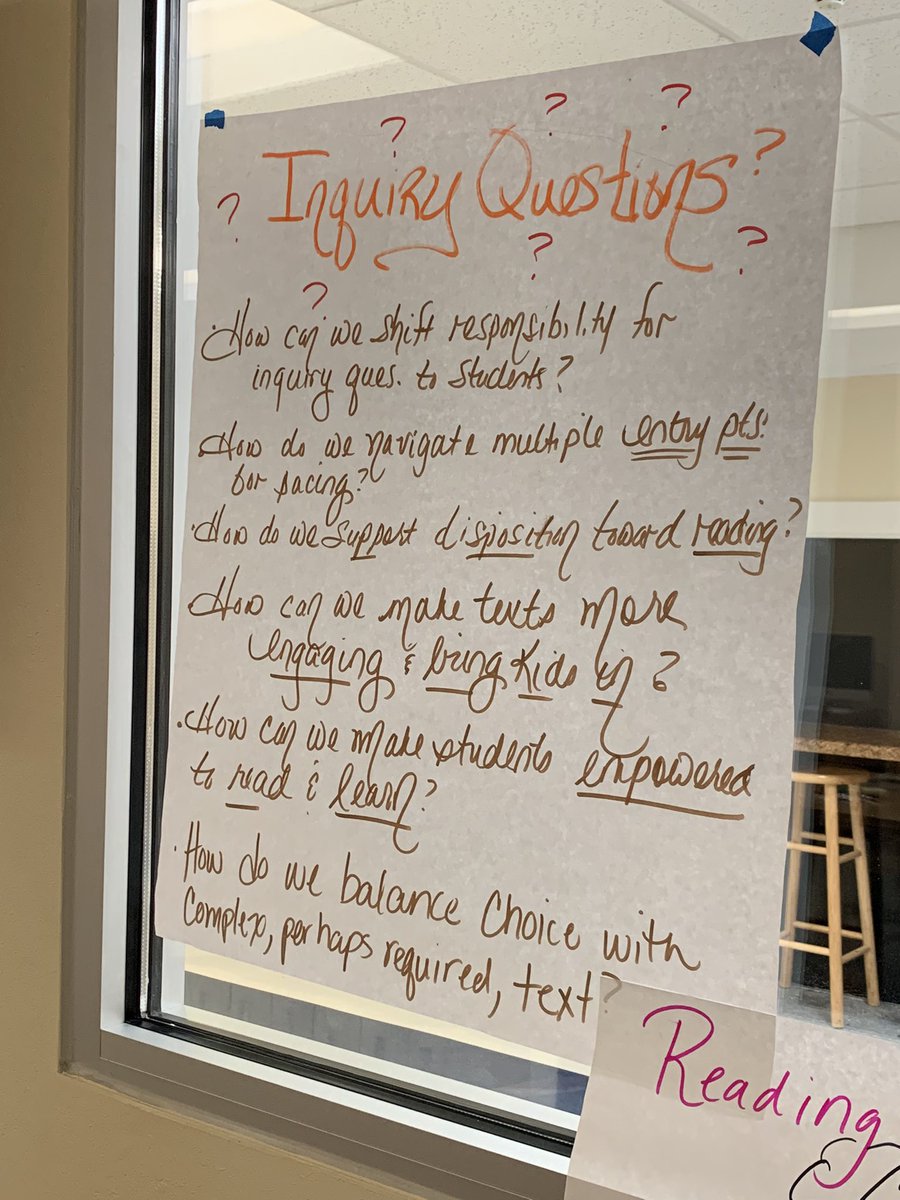 ? ? ?
Inquiry Questions?
? ? ? ?
·How can we shift responsibility for
inquiry ques. to students?
·How do we navigate multiple entry pts.
for pacing?
·How do we support disposition toward reading?
·How can we make texts more
engaging & bring kids in?
·How can we make students empowered
to read & learn?
·How do we balance choice with
complex, perhaps required, text?
Reading